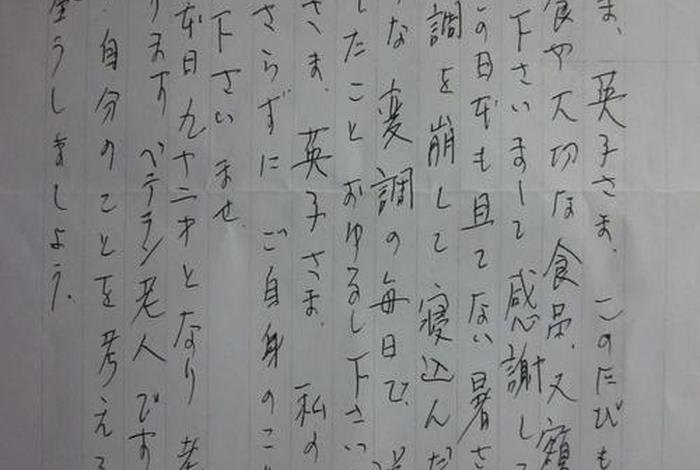 ま、英子さま、このたびも
食や大切な食品、又額
下さいまして感謝し
この日本も且てない暑さ
調を崩して寝込んだ
な変調の毎日で、
したことおゆるし下さい
さま、英子さま、私の
さらずに ご自身のこ
下さいませ
本日九十二才となり 老
ります ベテラン老人です
自分のことを考え
堂うしましょう。